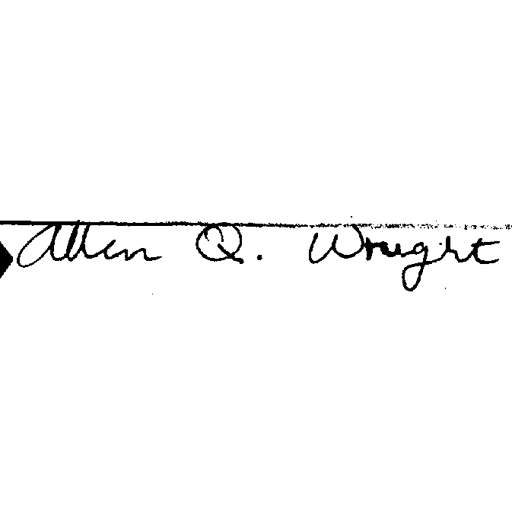 Allen Q. Wright